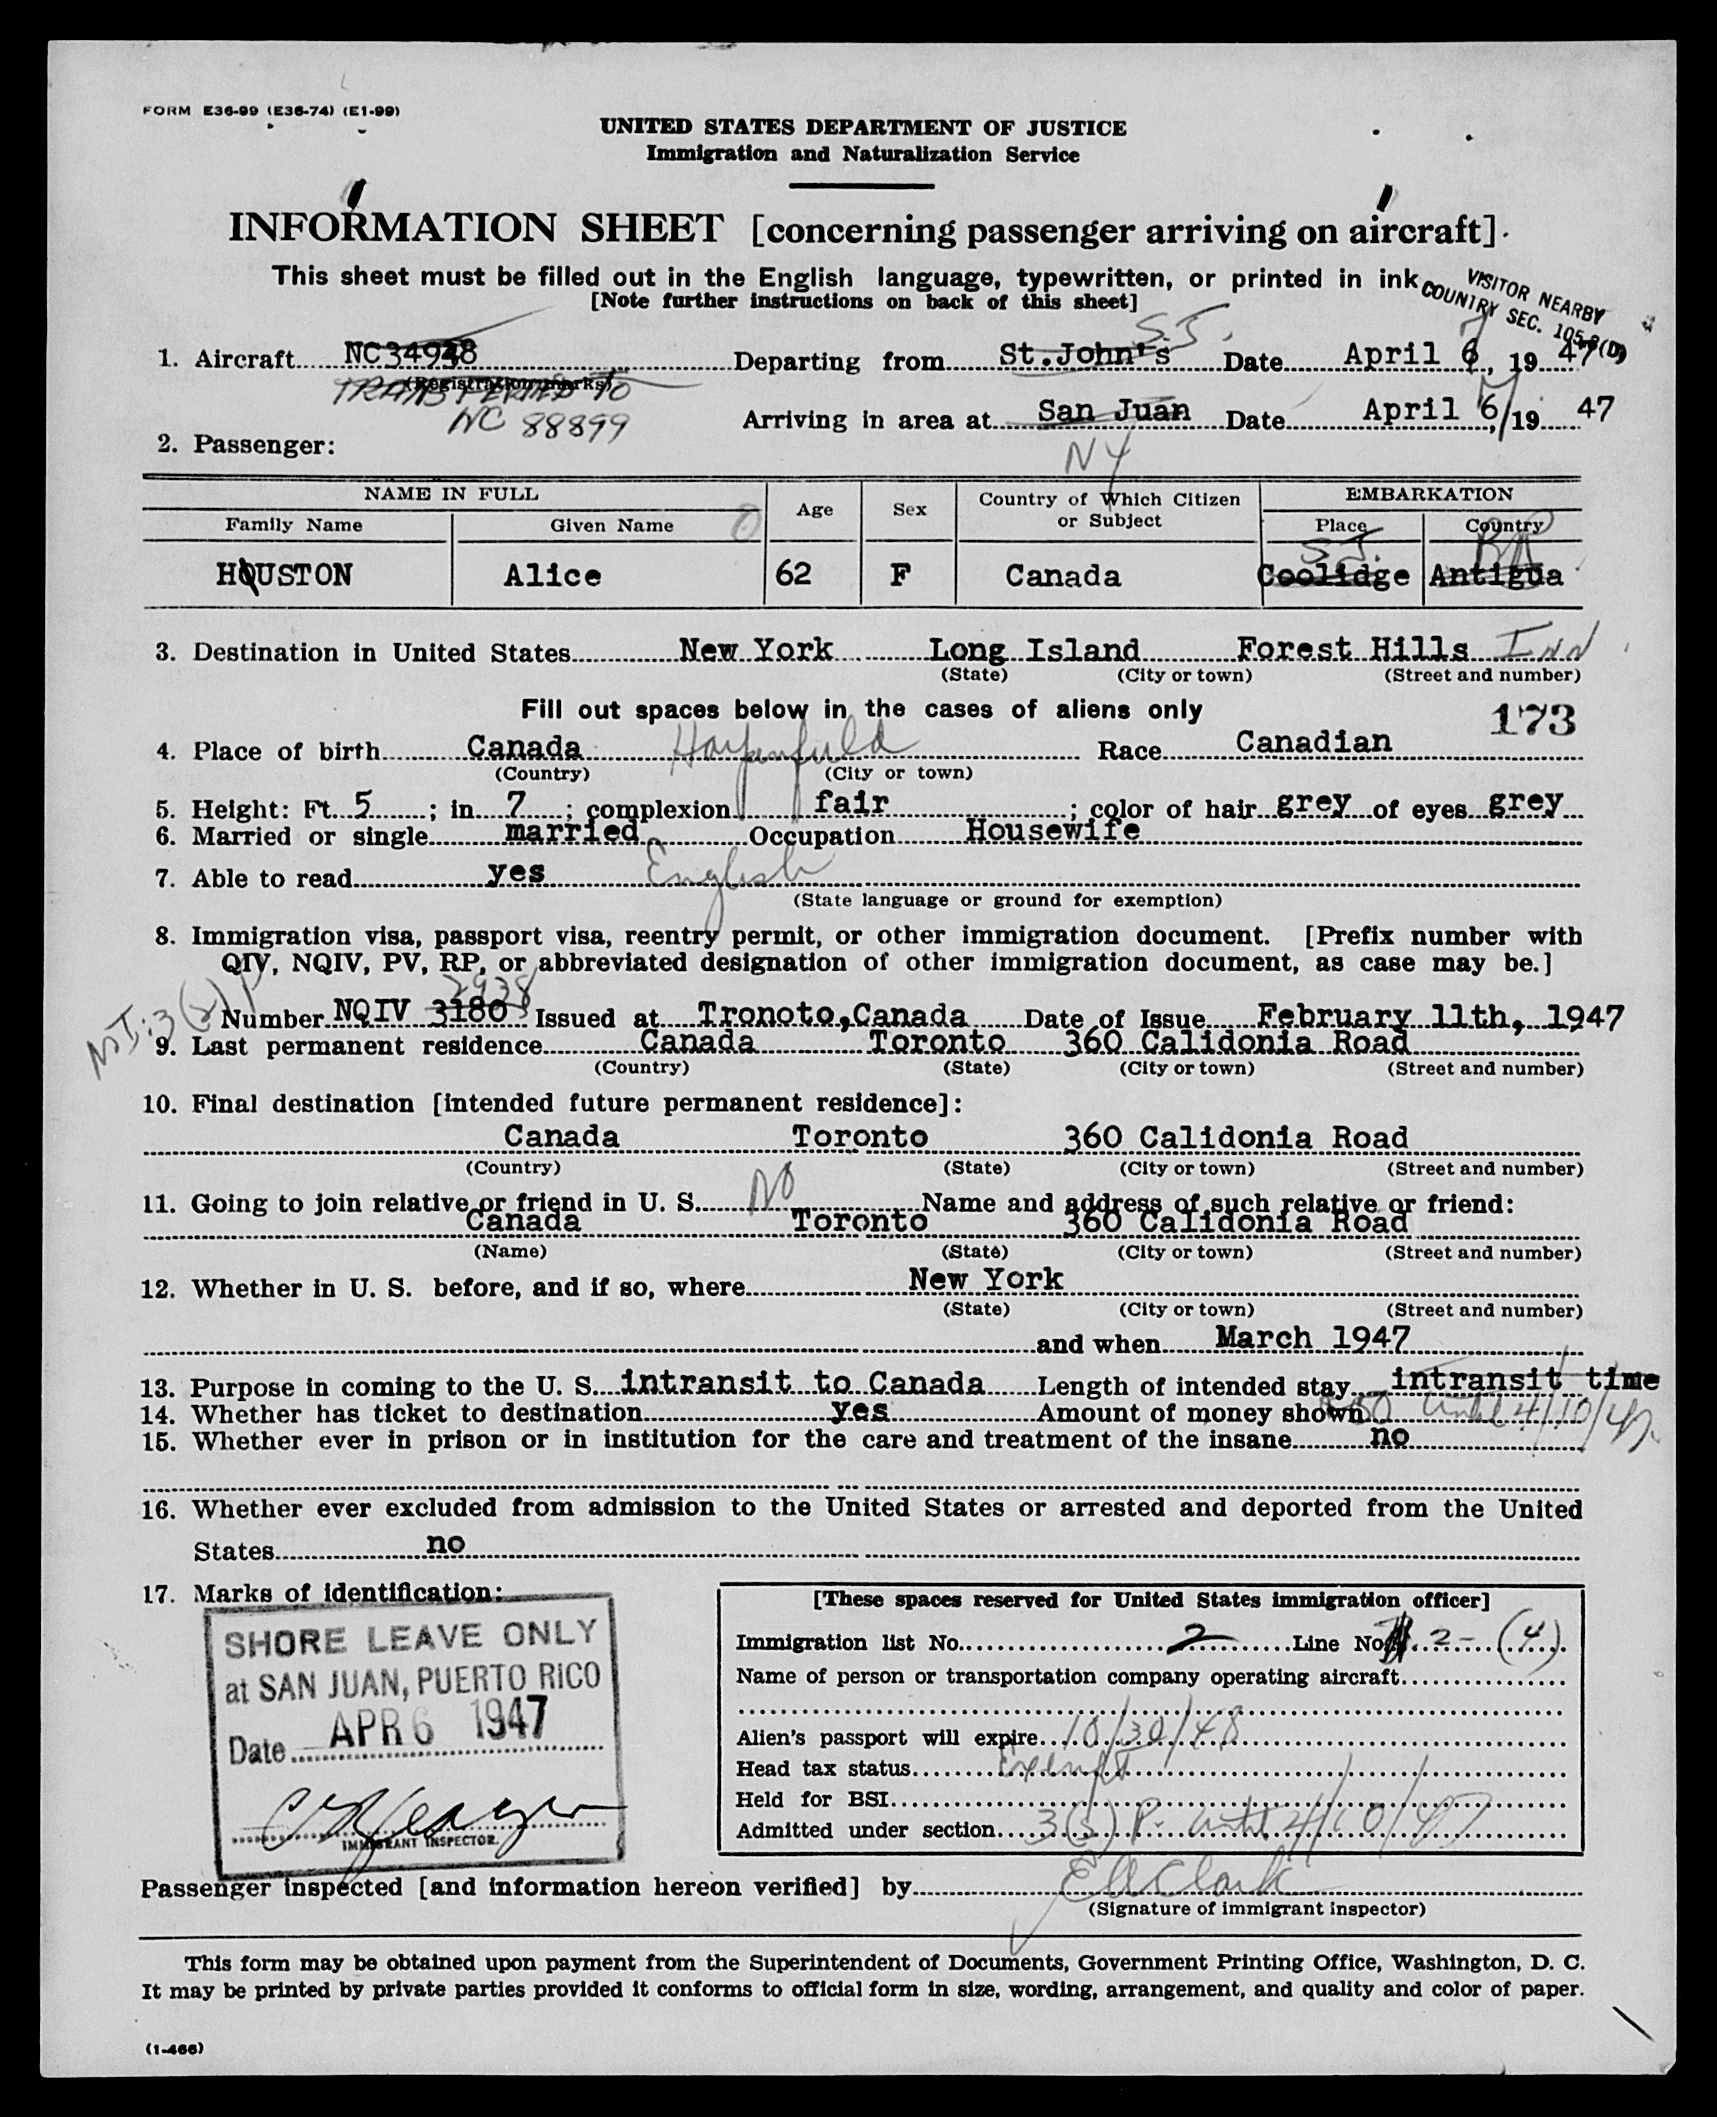 FORM E36-99 (E36-74) (E1-99)
UNITED STATES DEPARTMENT OF JUSTICE
Immigration and Naturalization Service
INFORMATION SHEET [concerning passenger arriving on aircraft].
This sheet must be filled out in the English language, typewritten, or printed in ink
[Note further instructions on back of this sheet]
VISITOR NEARBY
COUNTRY SEC. 105.3(D)
S.J.
1. Aircraft NC34948 Departing from St.John's Date April 6, 1947
(Registration marks)
TRANSFERRED TO
NC 88899
Arriving in area at San Juan Date April 6, 1947
7
NY
2. Passenger:
NAME IN FULL
Family Name Given Name Age Sex Country of Which Citizen or Subject EMBARKATION Place Country
S.J.
HOUSTON Alice 62 F Canada Coolidge Antigua
3. Destination in United States New York Long Island Forest Hills Inn
(State) (City or town) (Street and number)
Fill out spaces below in the cases of aliens only 173
4. Place of birth Canada Race Canadian
(Country) (City or town)
5. Height: Ft. 5; in. 7; complexion fair; color of hair grey of eyes grey
6. Married or single married Occupation Housewife
7. Able to read yes English
(State language or ground for exemption)
8. Immigration visa, passport visa, reentry permit, or other immigration document. [Prefix number with
QIV, NQIV, PV, RP, or abbreviated designation of other immigration document, as case may be.]
2938
Number NQIV 3180 Issued at Tronoto,Canada Date of Issue February 11th, 1947
9. Last permanent residence Canada Toronto 360 Calidonia Road
(Country) (State) (City or town) (Street and number)
10. Final destination [intended future permanent residence]:
Canada Toronto 360 Calidonia Road
(Country) (State) (City or town) (Street and number)
11. Going to join relative or friend in U. S. No Name and address of such relative or friend:
Canada Toronto 360 Calidonia Road
(Name) (State) (City or town) (Street and number)
12. Whether in U. S. before, and if so, where New York
(State) (City or town) (Street and number)
and when March 1947
13. Purpose in coming to the U. S. intransit to Canada Length of intended stay intransit time
14. Whether has ticket to destination yes Amount of money shown 50 until 4/10/47
15. Whether ever in prison or in institution for the care and treatment of the insane no
16. Whether ever excluded from admission to the United States or arrested and deported from the United
States no
17. Marks of identification:
SHORE LEAVE ONLY
at SAN JUAN, PUERTO RICO
Date APR 6 1947
IMMIGRANT INSPECTOR.
[These spaces reserved for United States immigration officer]
Immigration list No. 2 Line No. 2-(4)
Name of person or transportation company operating aircraft
Alien's passport will expire 10/30/48
Head tax status Exempt
Held for BSI
Admitted under section 3(2) P. until 4/10/47
Passenger inspected [and information hereon verified] by E A Clark
(Signature of immigrant inspector)
This form may be obtained upon payment from the Superintendent of Documents, Government Printing Office, Washington, D. C.
It may be printed by private parties provided it conforms to official form in size, wording, arrangement, and quality and color of paper.
(1-466)